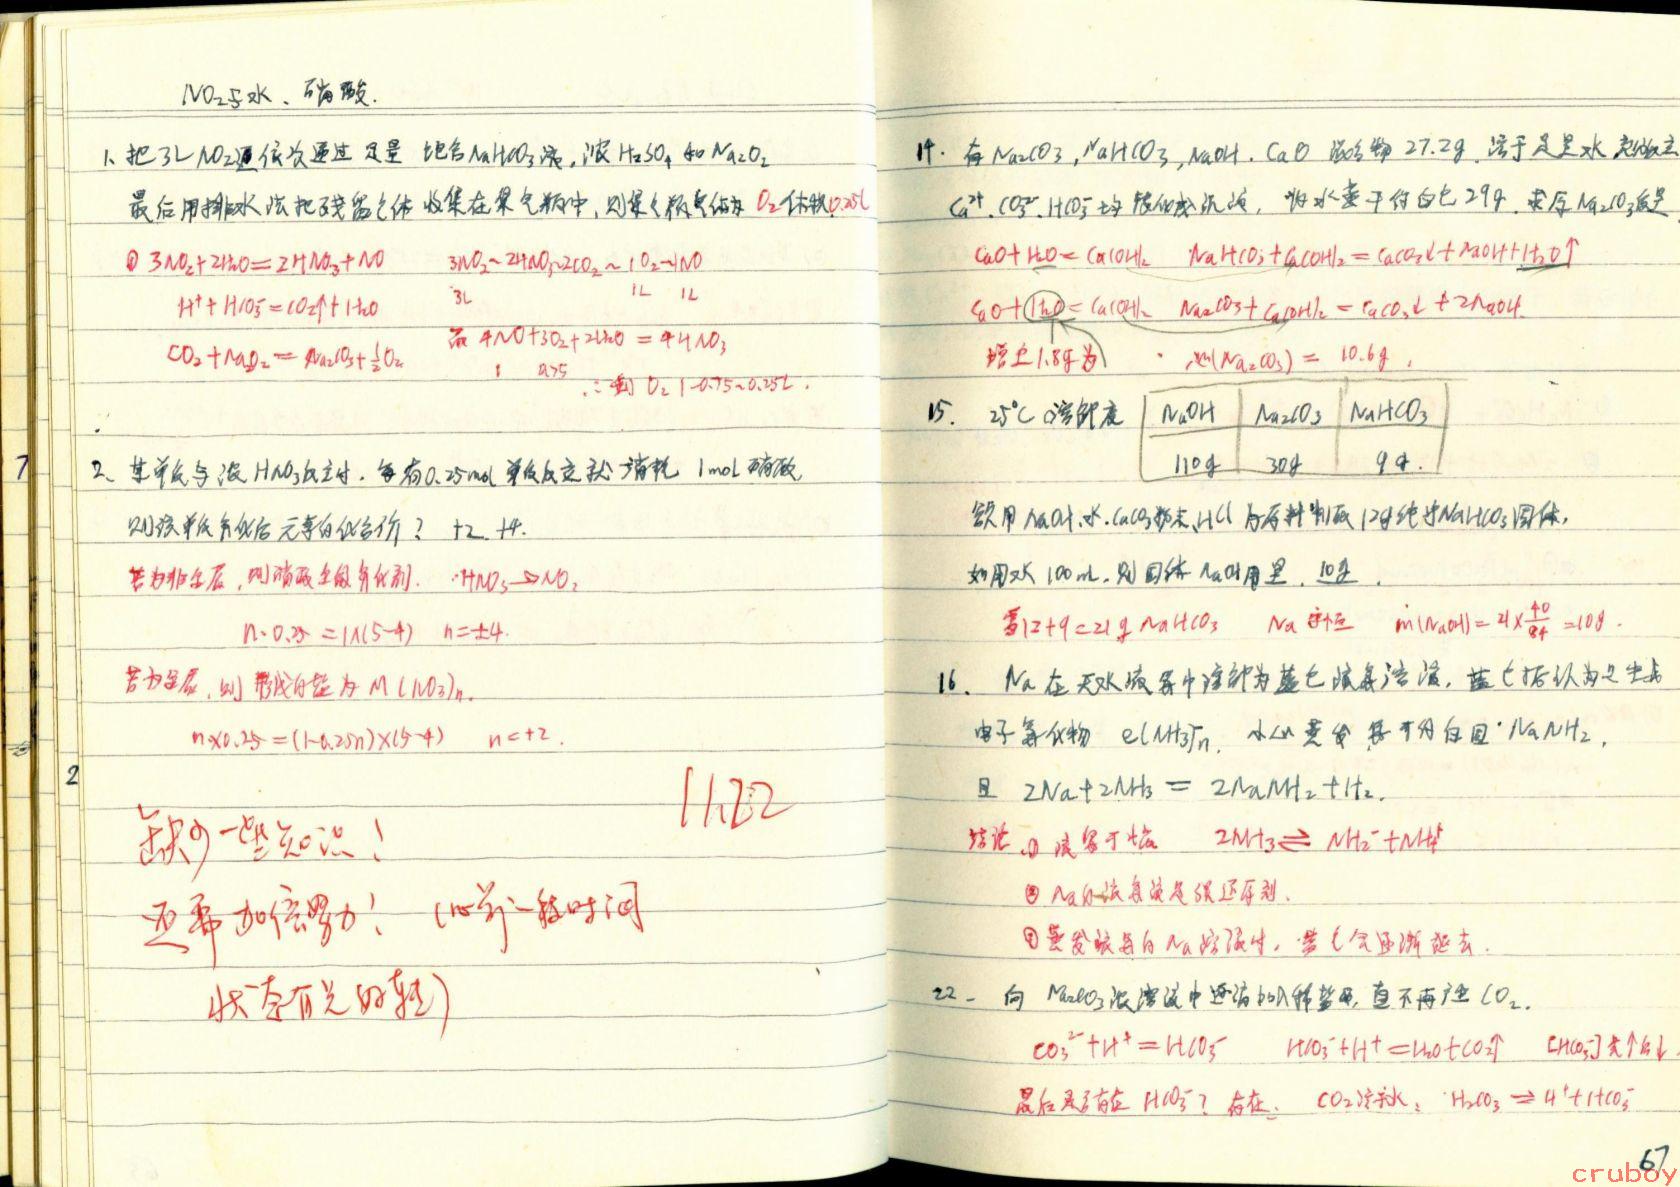 NO₂与水、硝酸.
1、把3L NO₂依次通过足量 饱和NaHCO₃液,浓H₂SO₄和Na₂O₂
最后用排水法把残留气体收集在集气瓶中,则集气瓶气体为 O₂体积0.25L
① 3NO₂+H₂O=2HNO₃+NO 3NO₂~2HNO₃~2CO₂~1O₂~1NO
3L 1L 1L
H⁺+HCO₃⁻=CO₂↑+H₂O
CO₂+Na₂O₂=Na₂CO₃+½O₂ 而 4NO+3O₂+2H₂O=4HNO₃
1 0.75
∴剩O₂ 1-0.75~0.25L.
2、某单质与浓HNO₃反应时,每有0.25mol单质反应就消耗 1mol硝酸,
则该单质氧化后元素的化合价? +2 +4.
若为非金属,则硝酸全做氧化剂. HNO₃→NO₂
n·0.25=1×(5-4) n=±4.
若为金属,则形成的盐为M(NO₃)n.
n×0.25=(1-0.25n)×(5-4) n=+2.
缺少一些知识!
还需加倍努力!
状态有关的转)
14. 有Na₂CO₃,NaHCO₃,NaOH.CaO混合物27.2g,溶于足量水充分反应
Ca²⁺.CO₃²⁻.HCO₃⁻均转化成沉淀,将水蒸干得白色29g.求原Na₂CO₃质量
CaO+H₂O=Ca(OH)₂ NaHCO₃+Ca(OH)₂=CaCO₃↓+NaOH+H₂O↑
CaO+H₂O=Ca(OH)₂ Na₂CO₃+Ca(OH)₂=CaCO₃↓+2NaOH.
增重1.8g为 m(Na₂CO₃)=10.6g.
15. 25℃溶解度 NaOH Na₂CO₃ NaHCO₃
110g 30g 9g.
欲用NaOH.水.CaCO₃粉末,HCl为原料制取12g纯净NaHCO₃固体,
如用水100mL.则固体NaOH用量.10g.
需12+9=21g NaHCO₃ Na守恒 m(NaOH)=21×40/84=10g.
16. Na在无水液氨中溶解为蓝色液氨溶液,蓝色后认为是生成
电子氨化物 e(NH₃)n⁻.小心蒸发得到白固 NaNH₂.
且 2Na+2NH₃=2NaNH₂+H₂.
结论.① 2NH₃⇌NH₂⁻+NH₄⁺
② Na的液氨液是强还原剂.
③ 蒸发液氨的Na溶液时,蓝色会逐渐褪去.
22- 向Na₂CO₃浓溶液中逐滴加入稀盐酸,直不再产生CO₂.
CO₃²⁻+H⁺=HCO₃⁻ HCO₃⁻+H⁺=H₂O+CO₂↑ [HCO₃⁻]先↑后↓.
最后是否存在HCO₃⁻?存在. CO₂溶于水. H₂CO₃⇌H⁺+HCO₃⁻
67
cruboy
7
2